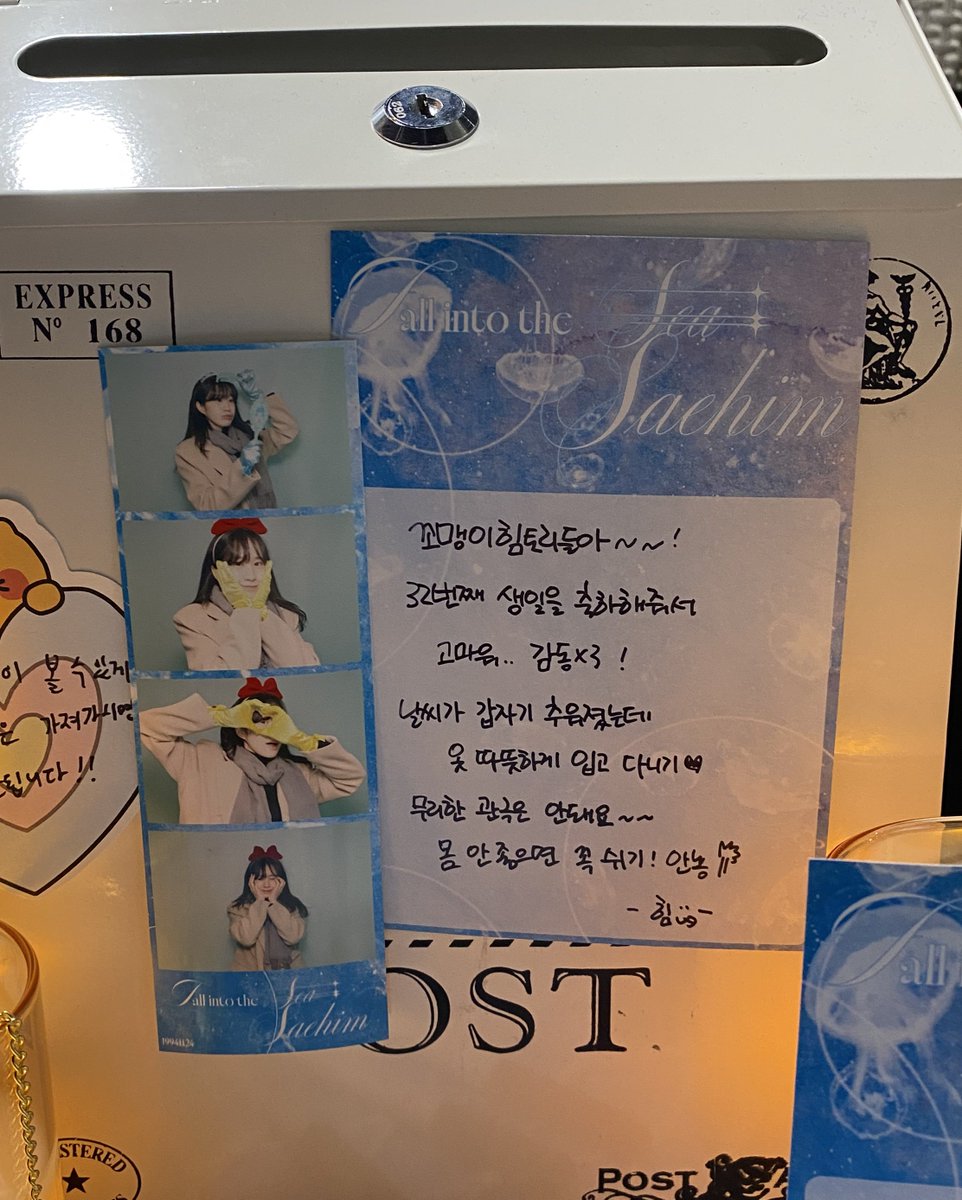 062
EXPRESS
Nº 168
Fall into the
Sea
Saehim
꼬맹이힘토리들아~~!
32번째 생일을 축하해줘서
고마워.. 감동x3 !
날씨가 갑자기 추워졌는데
옷 따뜻하게 입고 다니기♥
무리한 관극은 안돼요~~
몸 안 좋으면 꼭 쉬기! 안농
- 힘 -
이 볼 수 있게
가져가시면
됩니다!!
Fall into the
Sea
Saehim
19941124
OST
Fall
STERED
POST